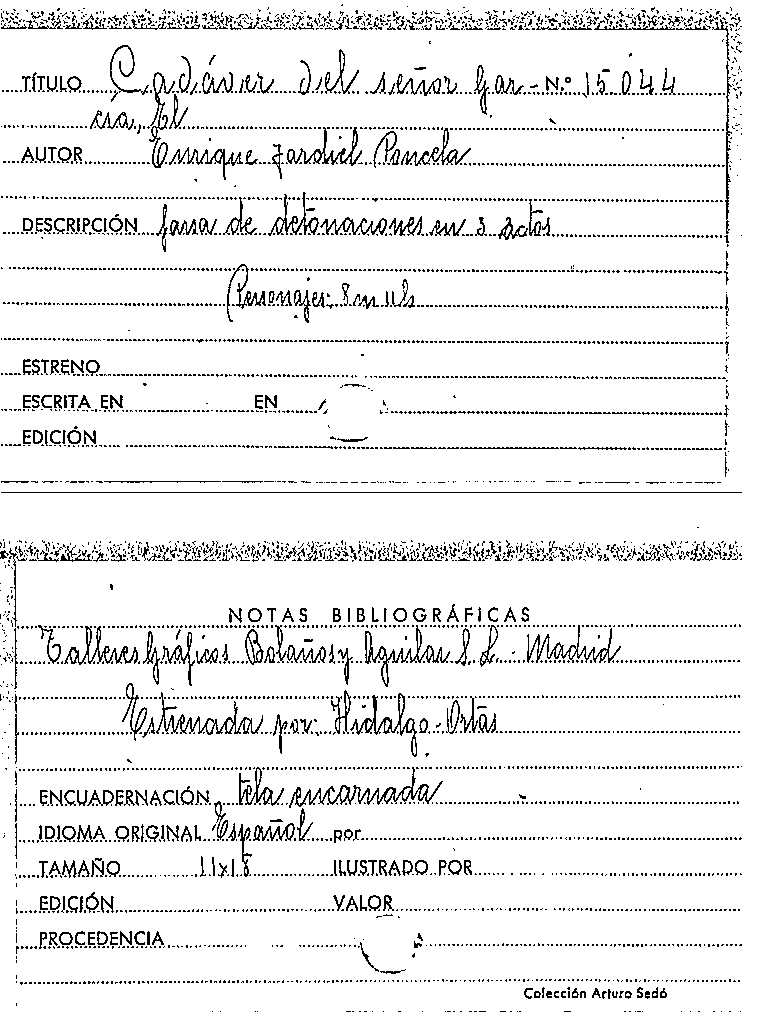 TÍTULO Cadáver del señor Gar- N.º 15044
cía, El
AUTOR Enrique Jardiel Poncela
DESCRIPCIÓN farsa de detonaciones en 3 actos
Personajes: 8m 11h
ESTRENO
ESCRITA EN EN
EDICIÓN
NOTAS BIBLIOGRÁFICAS
Talleres Gráficos Bolaños y Aguilar S. L. - Madrid
Estrenada por: Hidalgo - Ortas
ENCUADERNACIÓN tela encarnada
IDIOMA ORIGINAL Español por
TAMAÑO 11x18 ILUSTRADO POR
EDICIÓN VALOR
PROCEDENCIA
Colección Arturo Sedó